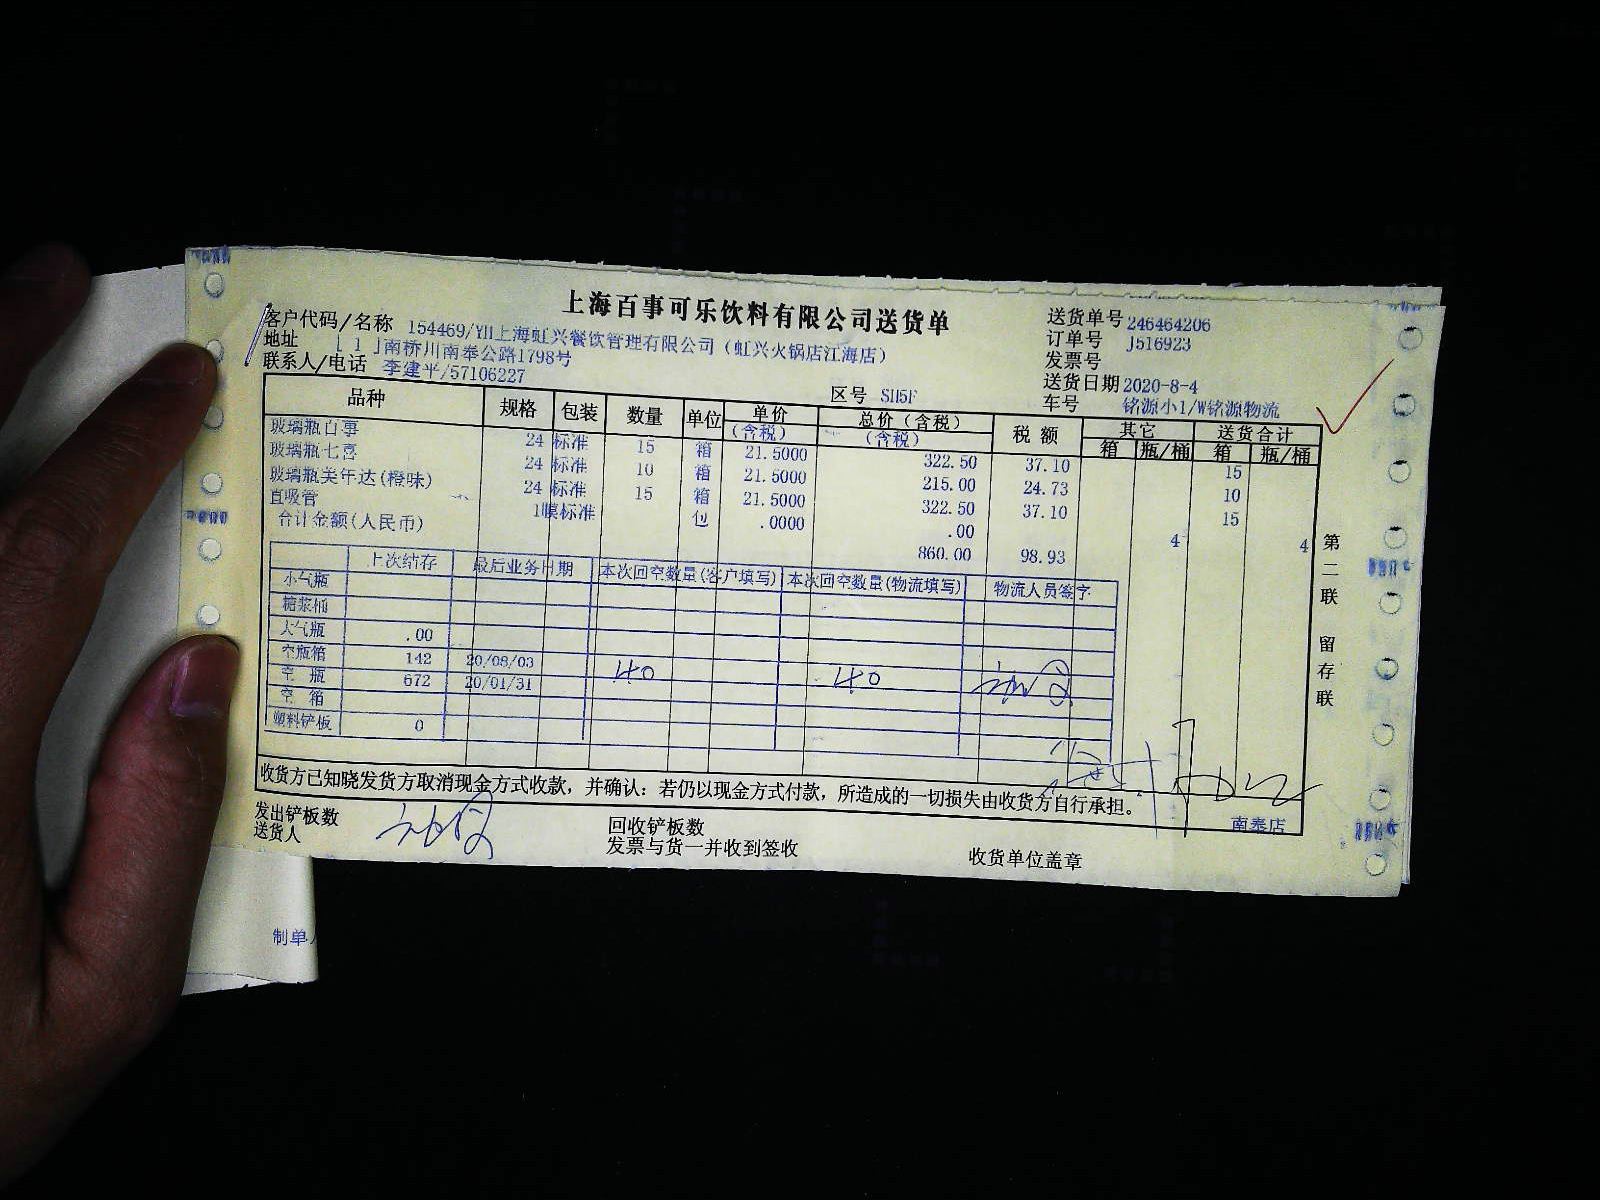 上海百事可乐饮料有限公司送货单
客户代码/名称 154469/YH上海虹兴餐饮管理有限公司（虹兴火锅店江海店）
地址 [ 1 ]南桥川南奉公路1798号
联系人/电话 李建平/57106227
送货单号 246464206
订单号 J516923
发票号
送货日期 2020-8-4
区号 SH5F
车号 铭源小1/W铭源物流
品种 规格 包装 数量 单位 单价（含税） 总价（含税） 税额 其它 送货合计
（含税） 箱 瓶/桶 箱 瓶/桶
玻璃瓶百事 24 标准 15 箱 21.5000 322.50 37.10 15
玻璃瓶七喜 24 标准 10 箱 21.5000 215.00 24.73 10
玻璃瓶美年达(橙味) 24 标准 15 箱 21.5000 322.50 37.10 15
直吸管 1膜标准 包 .0000 .00 4 4
合计金额(人民币) 860.00 98.93
上次结存 最后业务日期 本次回空数量(客户填写) 本次回空数量(物流填写) 物流人员签字
小气瓶
糖浆桶
大气瓶 .00
空瓶箱 142 20/08/03 40 40
空 瓶 672 20/01/31
空 箱
塑料铲板 0
收货方已知晓发货方取消现金方式收款，并确认：若仍以现金方式付款，所造成的一切损失由收货方自行承担。
南奉店
发出铲板数 回收铲板数
送货人 发票与货一并收到签收 收货单位盖章
第二联 留存联
制单人